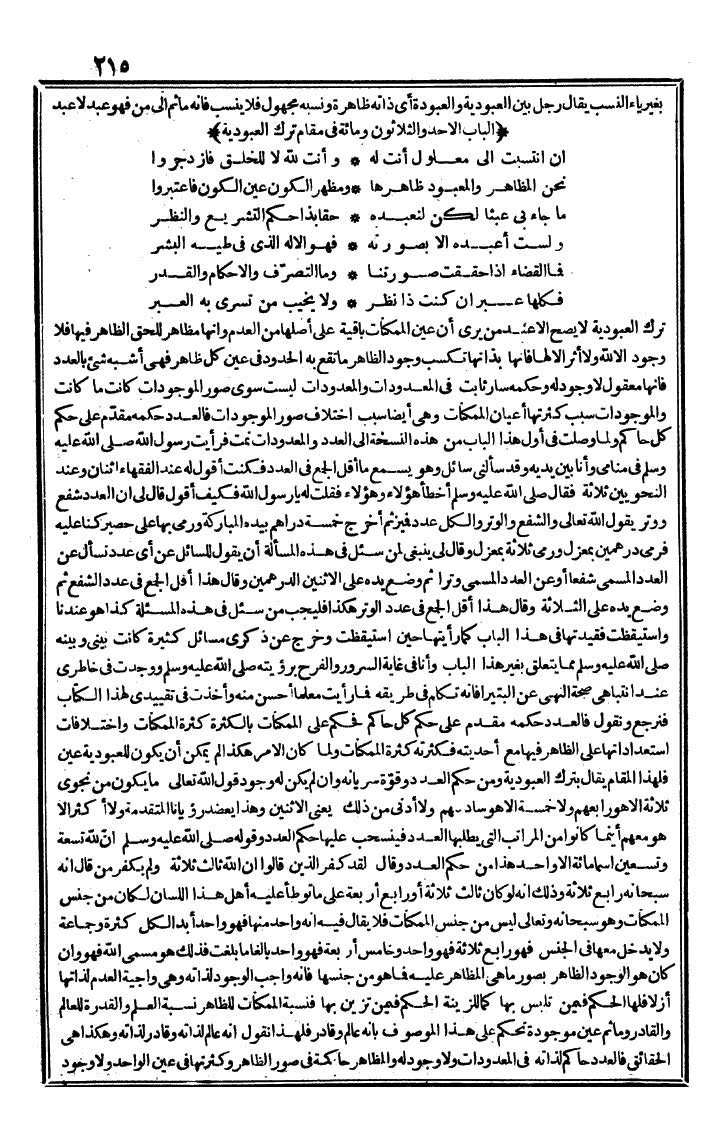 ٢١٥
بغير ياء النسب يقال رجل بين العبودية والعبودة أى ذاته ظاهرة ونسبه مجهول فلا ينسب فانه ماثم الى من فهو عبد لا عبد
﴿الباب الاحد والثلاثون ومائة فى مقام ترك العبودية﴾
ان انتسبت الى معلول أنت له * وأنت لله لا للخلق فازدجروا
نحن المظاهر والمعبود ظاهرها * ومظهر الكون عين الكون فاعتبروا
ما جاء بى عبثا لكن لنعبده * حقا بذا حكم التشريع والنظر
ولست أعبده الا بصورته * فهو الاله الذى فى طيه البشر
فما القضاء اذا حققت صورتنا * وما التصرّف والاحكام والقدر
فكلها عبر ان كنت ذا نظر * ولا يخيب من تسرى به العبر
ترك العبودية لا يصح الا عند من يرى أن عين الممكنات باقية على أصلها من العدم وانها مظاهر للحق الظاهر فيها فلا
وجود الا لله ولا أثر الا لها فانها بذاتها تكسب وجود الظاهر ما تقع به الحدود فى عين كل ظاهر فهى أشبه شئ بالعدد
فانها معقول لا وجود له وحكمه سار ثابت فى المعدودات والمعدودات ليست سوى صور الموجودات كانت ما كانت
والموجودات سبب كثرتها أعيان الممكنات وهى أيضا سبب اختلاف صور الموجودات فالعدد حكمه مقدّم على حكم
كل حاكم ولما وصلت فى أول هذا الباب من هذه النسخة الى العدد والمعدودات نمت فرأيت رسول الله صلى الله عليه
وسلم فى منامى وأنا بين يديه وقد سألنى سائل وهو يسمع ما أقل الجمع فى العدد فكنت أقول له عند الفقهاء اثنان وعند
النحويين ثلاثة فقال صلى الله عليه وسلم أخطأ هؤلاء وهؤلاء فقلت له يا رسول الله فكيف أقول قال لى ان العدد شفع
ووتر يقول الله تعالى والشفع والوتر والكل عدد فميز ثم أخرج خمسة دراهم بيده المباركة ورمى بها على حصير كنا عليه
فرمى درهمين بمعزل ورمى ثلاثة بمعزل وقال لى ينبغى لمن سئل فى هذه المسألة أن يقول للسائل عن أى عدد تسأل عن
العدد المسمى شفعا أو عن العدد المسمى وترا ثم وضع يده على الاثنين الدرهمين وقال هذا أقل الجمع فى عدد الشفع ثم
وضع يده على الثلاثة وقال هذا أقل الجمع فى عدد الوتر هكذا فليجب من سئل فى هذه المسئلة كذا هو عندنا
واستيقظت فقيدتها فى هذا الباب كما رأيتها حين استيقظت وخرج عن ذكرى مسائل كثيرة كانت بينى وبينه
صلى الله عليه وسلم مما يتعلق بغير هذا الباب وأنا فى غاية السرور والفرح برؤيته صلى الله عليه وسلم ووجدت فى خاطرى
عند انتباهى صحة النهى عن البتيراء فانه تكلم فى طريقه فما رأيت معلما أحسن منه وأخذت فى تقييدى لهذا الكتاب
فنرجع ونقول فالعدد حكمه مقدم على حكم كل حاكم فحكم على الممكنات بالكثرة كثرة الممكنات واختلافات
استعداداتها على الظاهر فيها مع أحديته فكثرته كثرة الممكنات ولما كان الامر هكذا لم يمكن أن يكون للعبودية عين
فلهذا المقام يقال بترك العبودية ومن حكم العدد وقوّة سريانه وان لم يكن له وجود قول الله تعالى ما يكون من نجوى
ثلاثة الا هو رابعهم ولا خمسة الا هو سادسهم ولا أدنى من ذلك يعنى الاثنين وهذا يعضد رؤيانا المتقدمة ولا أكثر الا
هو معهم أينما كانوا من المراتب التى يطلبها العدد فينسحب عليها حكم العدد وقوله صلى الله عليه وسلم انّ لله تسعة
وتسعين اسما مائة الا واحد هذا من حكم العدد وقال لقد كفر الذين قالوا ان الله ثالث ثلاثة ولم يكفر من قال انه
سبحانه رابع ثلاثة وذلك انه لو كان ثالث ثلاثة أو رابع أربعة على ما توطأ عليه أهل هذا اللسان لكان من جنس
الممكنات وهو سبحانه وتعالى ليس من جنس الممكنات فلا يقال فيه انه واحد منها فهو واحد أبدا لكل كثرة وجماعة
ولا يدخل معها فى الجنس فهو رابع ثلاثة فهو واحد وخامس أربعة فهو واحد بالغا ما بلغت فذلك هو مسمى الله فهو وان
كان هو الوجود الظاهر بصور ما هى المظاهر عليه فما هو من جنسها فانه واجب الوجود لذاته وهى واجبة العدم لذاتها
أزلا فلها الحكم فيمن تلبس بها كما للزينة الحكم فيمن تزين بها فنسبة الممكنات للظاهر نسبة العلم والقدرة للعالم
والقادر وماثم عين موجودة تحكم على هذا الموصوف بانه عالم وقادر فلهذا نقول انه عالم لذاته وقادر لذاته وهكذا هى
الحقائق فالعدد حاكم لذاته فى المعدودات ولا وجود له والمظاهر حاكمة فى صور الظاهر وكثرتها فى عين الواحد ولا وجود